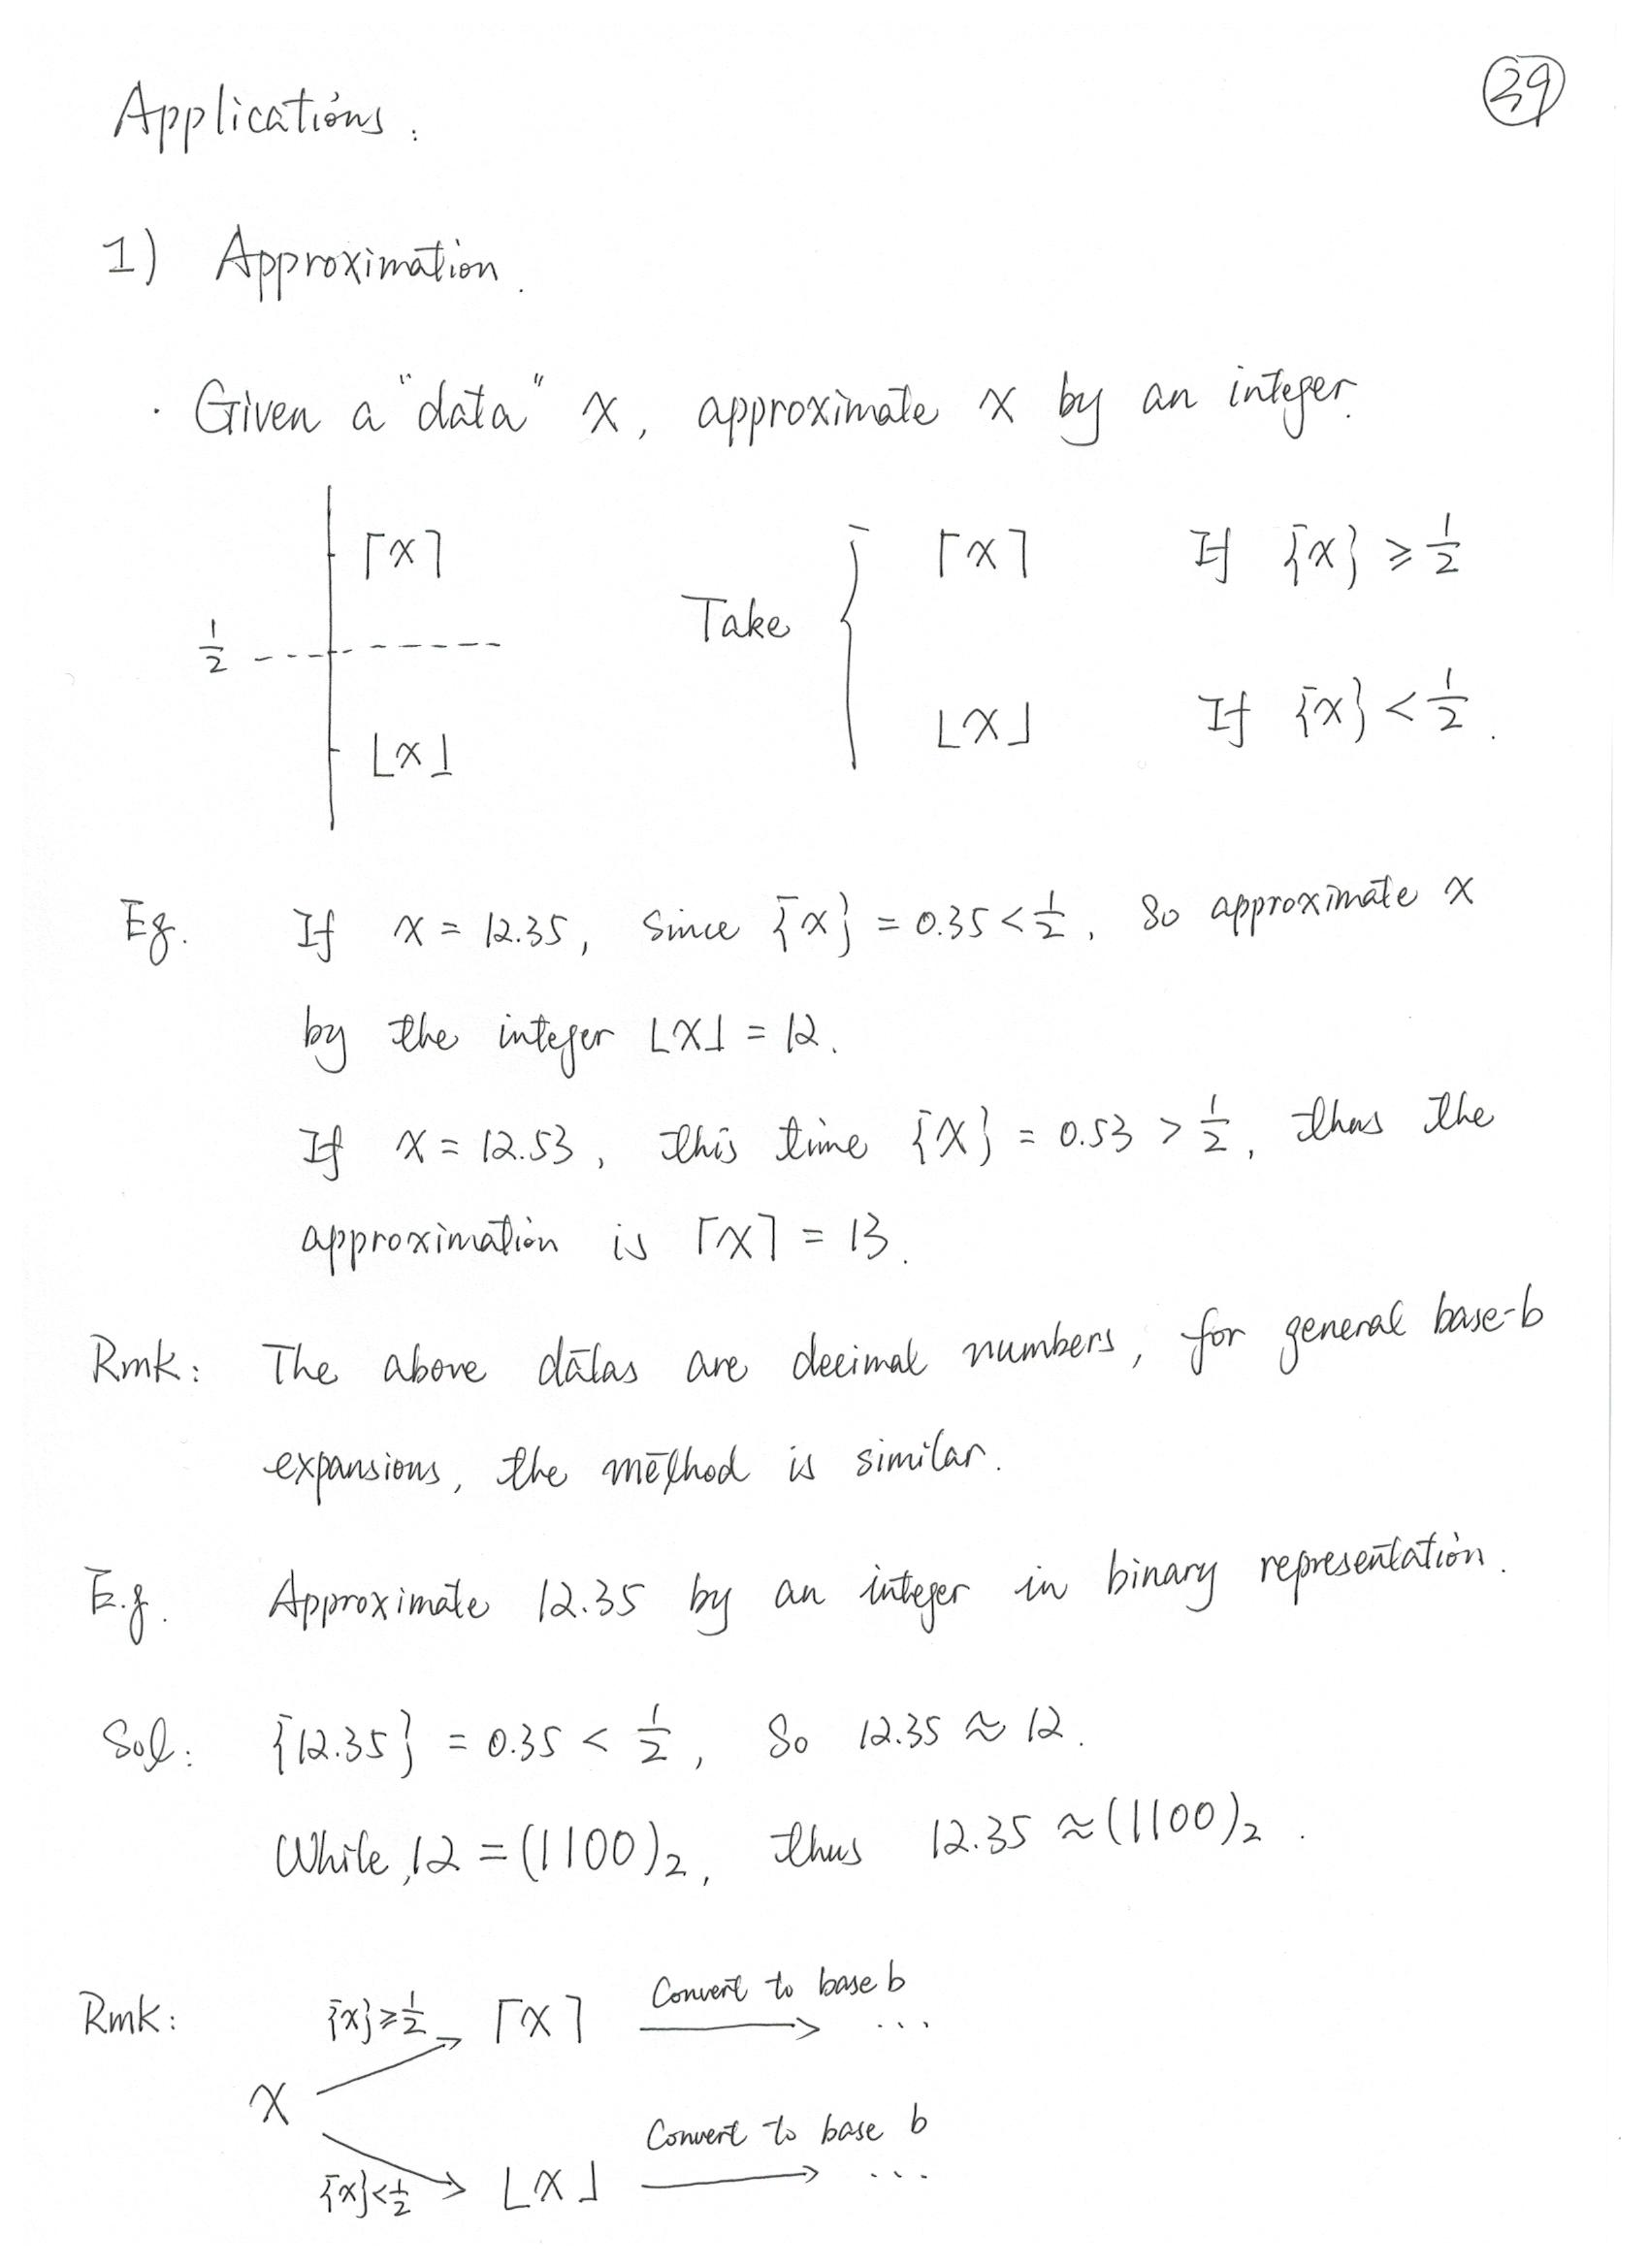 39
Applications.
1) Approximation.
· Given a "data" x, approximate x by an integer.
⌈x⌉
1/2
⌊x⌋
Take { ⌈x⌉ If {x} ≥ 1/2
⌊x⌋ If {x} < 1/2.
Eg. If x = 12.35, since {x} = 0.35 < 1/2, so approximate x
by the integer ⌊x⌋ = 12.
If x = 12.53, this time {x} = 0.53 > 1/2, thus the
approximation is ⌈x⌉ = 13.
Rmk: The above datas are decimal numbers, for general base-b
expansions, the method is similar.
E.g. Approximate 12.35 by an integer in binary representation.
Sol: {12.35} = 0.35 < 1/2, So 12.35 ≈ 12.
While, 12 = (1100)₂, thus 12.35 ≈ (1100)₂.
Rmk: {x} ≥ 1/2 ⌈x⌉ Convert to base b → ...
x
{x} < 1/2 ⌊x⌋ Convert to base b → ...